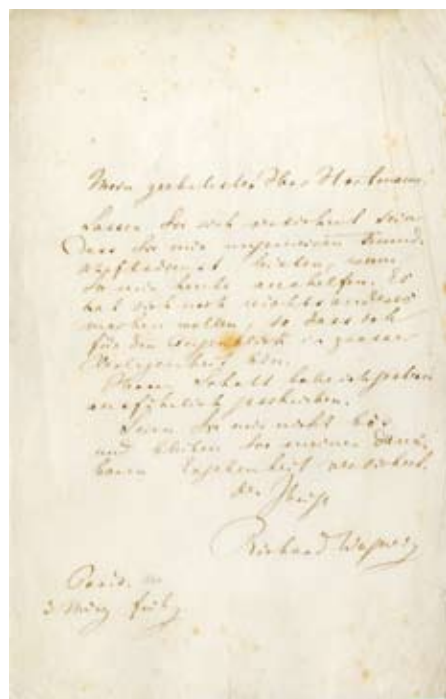 Mein geehrtester Herr Hartmann
Lassen Sie sich versichert sein
dass Sie mir ungemeinen Freund
leisten, wenn
Sie mir heute aushelfen. Es
hat sich noch nichts anderes
machen wollen, so dass ich
für den Augenblick in grosser
Verlegenheit bin.
Herrn Schott habe ich gestern
ausführlich geschrieben.
Seien Sie mir nicht bös
und bleiben Sie meiner dank
baren Ergebenheit versichert.
Der Ihrige
Richard Wagner
Paris
3 März früh